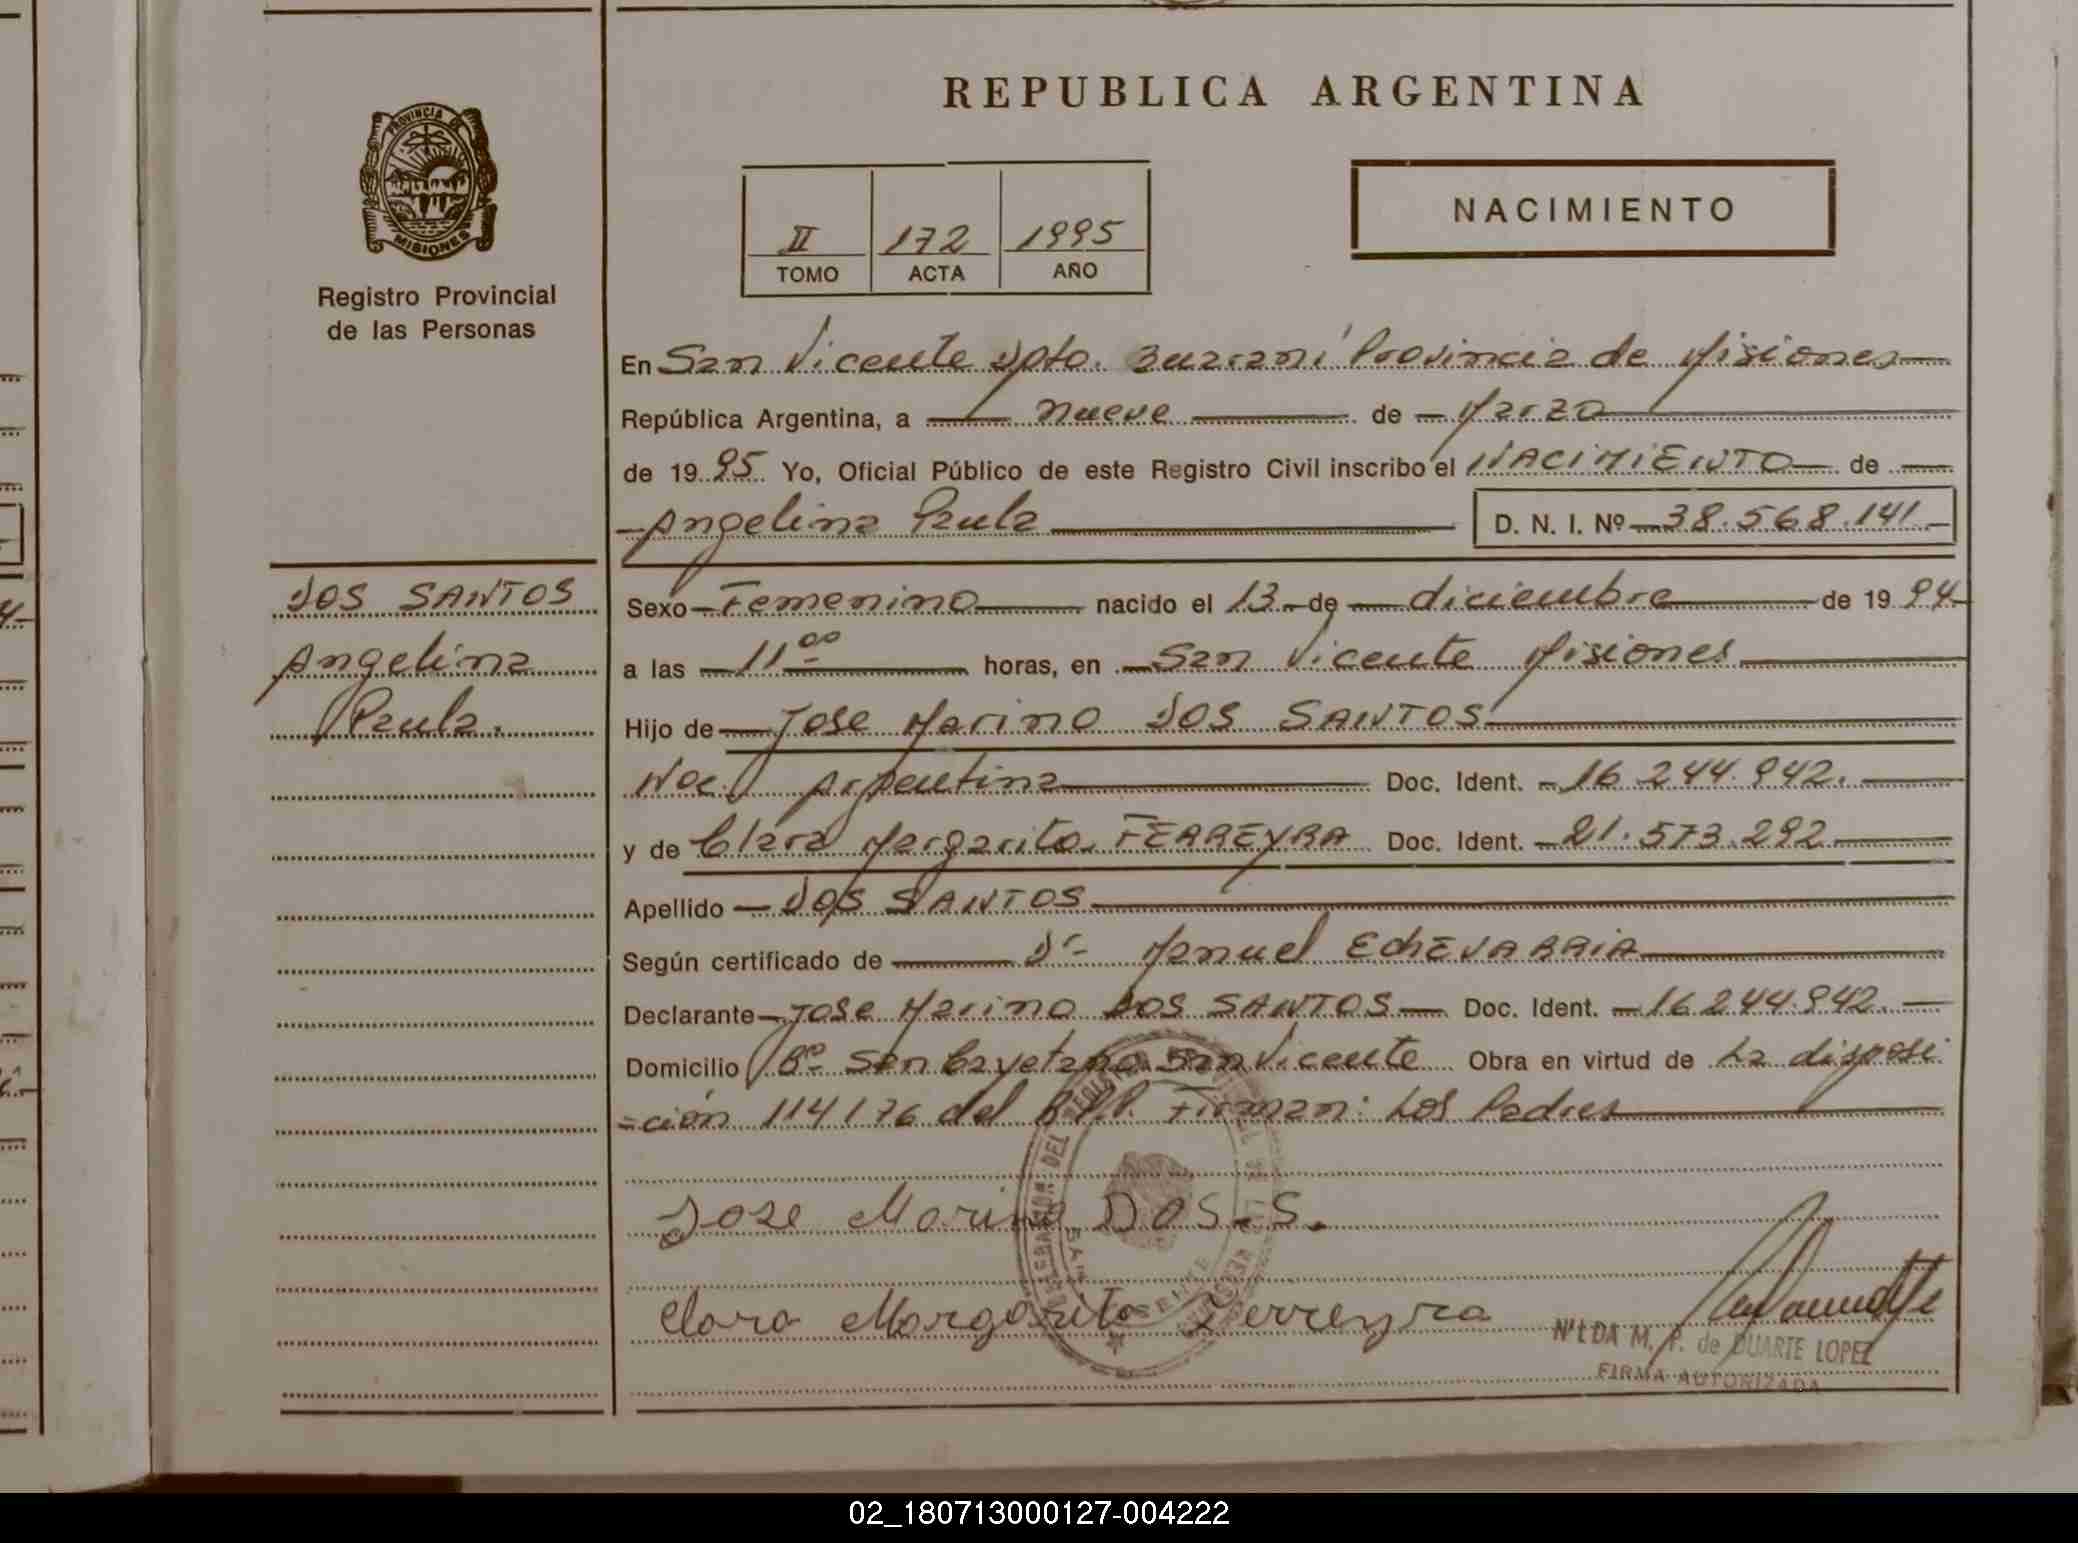 REPUBLICA ARGENTINA
PROVINCIA DE
MISIONES
Registro Provincial
de las Personas
II 172 1995
TOMO ACTA AÑO
NACIMIENTO
En San Vicente Dpto. Guarani Provincia de Misiones
República Argentina, a nueve de Marzo
de 1995 Yo, Oficial Público de este Registro Civil inscribo el NACIMIENTO de
Angelina Paula D. N. I. Nº 38.568.141
DOS SANTOS
Angelina
Paula.
Sexo Femenino nacido el 13 de diciembre de 1994
a las 11 00 horas, en San Vicente Misiones
Hijo de Jose Marino DOS SANTOS
Nac. Argentina Doc. Ident. 16.244.942.
y de Clara Margarita FERREYRA Doc. Ident. 21.573.292
Apellido DOS SANTOS
Según certificado de Dr Manuel EchEVARRIA
Declarante Jose Marino DOS SANTOS Doc. Ident. 16.244.942.
Domicilio Bº San Cayetano San Vicente Obra en virtud de La disposi
=ción 114/76 del R.P.P. Firman: Los Padres
Jose Marino DOS-S.
Clara Margarita Ferreyra
NILDA M. P. de DUARTE LOPEZ
FIRMA AUTORIZADA
02_180713000127-004222